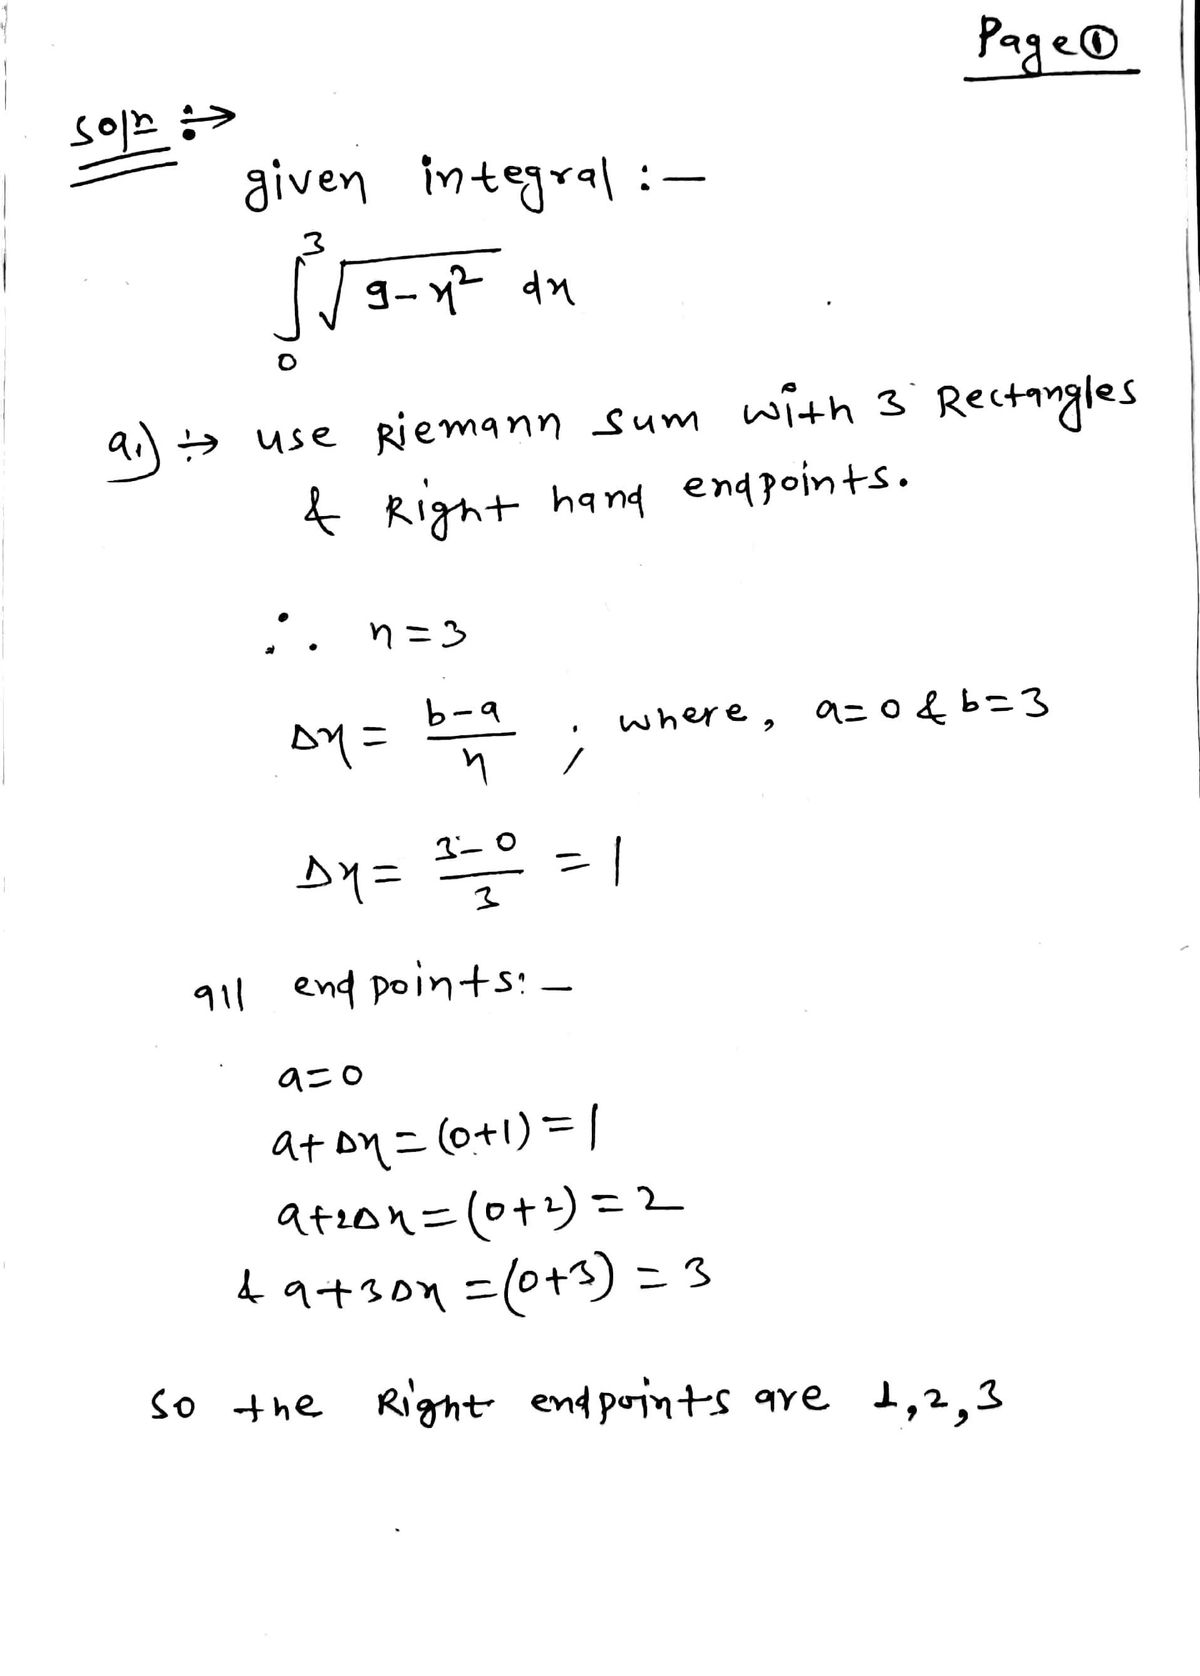 Page ①
Soln :→
given integral :—
∫₀³ √(9-x²) dx
a.) :→ use Riemann sum with 3 Rectangles
& Right hand endpoints.
∴ n=3
Δx = (b-a)/n ; where, a=0 & b=3
Δx = (3-0)/3 = 1
all endpoints:—
a=0
a+Δx = (0+1) = 1
a+2Δx = (0+2) = 2
& a+3Δx = (0+3) = 3
so the Right endpoints are 1,2,3